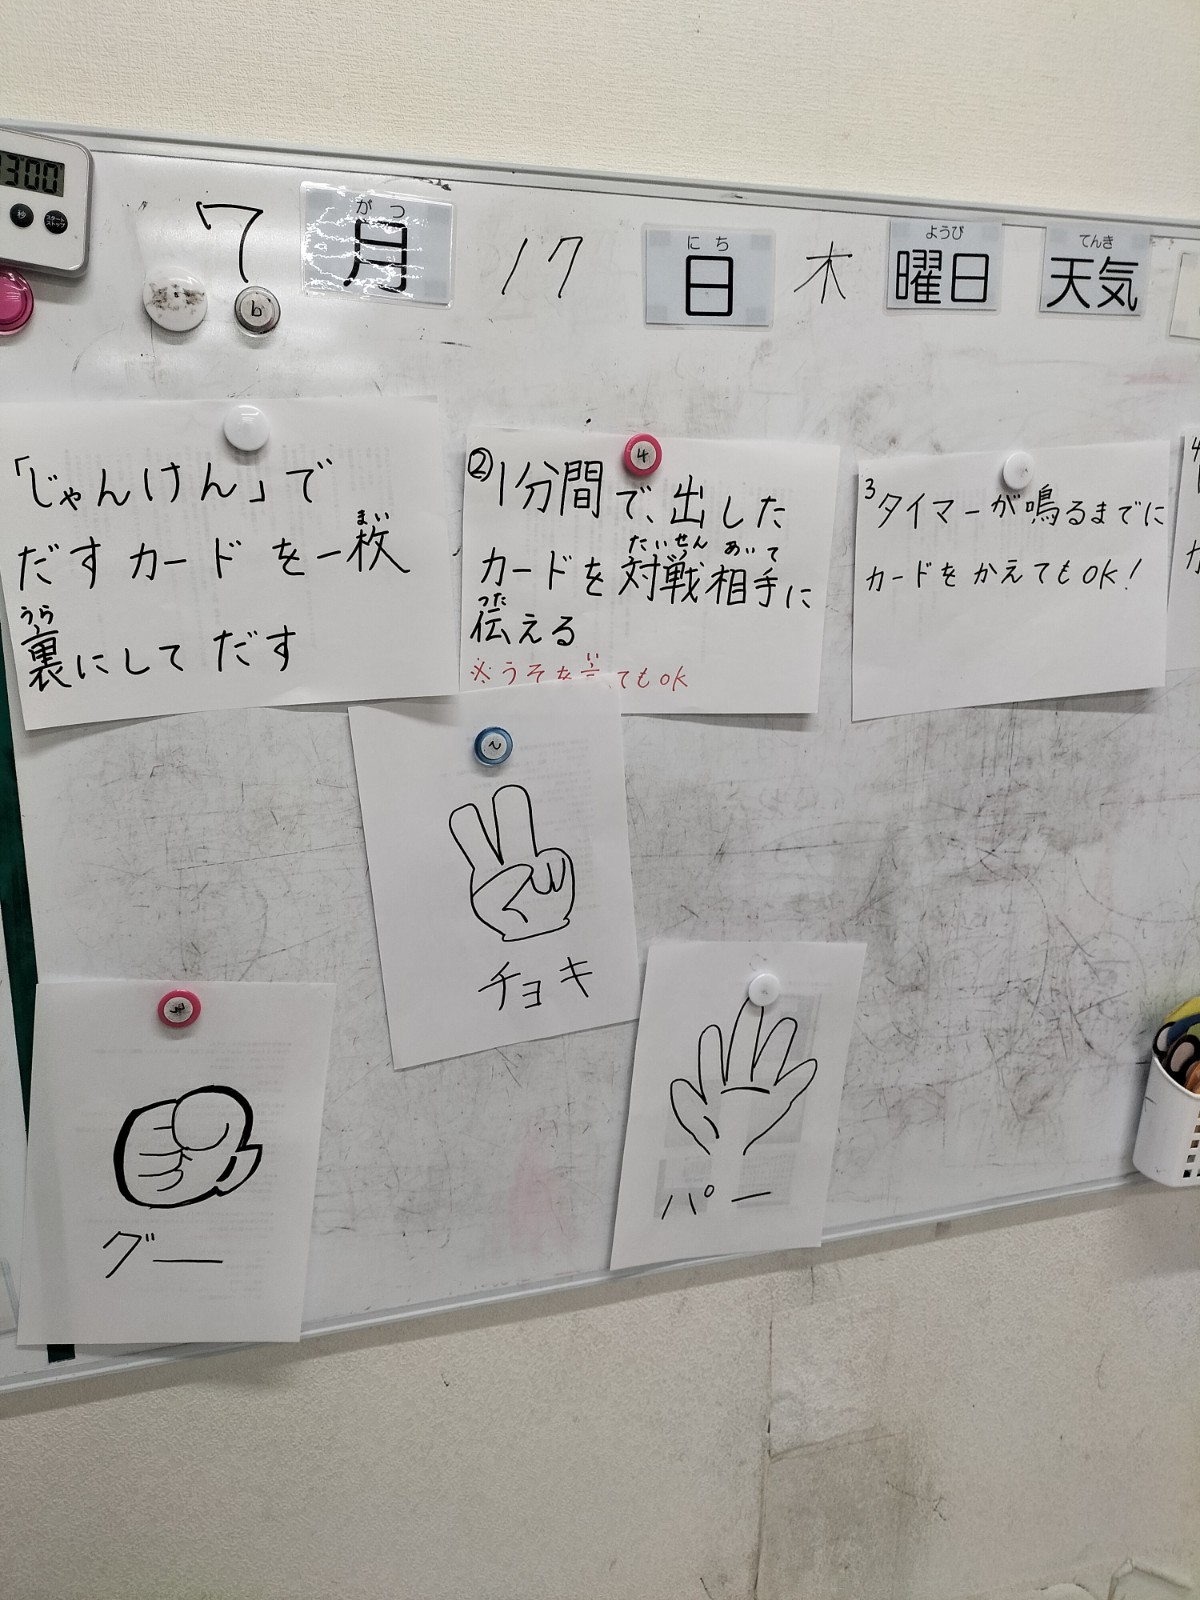 300
秒
スタート
ストップ
7
がつ
月
17
にち
日
木
ようび
曜日
てんき
天気
b
「じゃんけん」で
まい
だすカードを一枚
うら
裏にしてだす
4
②1分間で、出した
たいせん あいて
カードを対戦相手に
つた
伝える
い
※うそを言ってもOK
3 タイマーが鳴るまでに
カードをかえてもOK!
4
2
チョキ
グー
パー